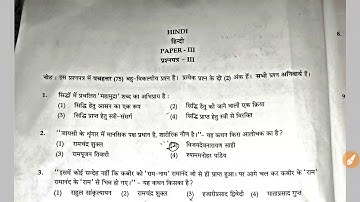 HINDI
हिन्दी
PAPER - III
प्रश्नपत्र - III
नोट : इस प्रश्नपत्र में पचहत्तर (75) बहु-विकल्पीय प्रश्न हैं। प्रत्येक प्रश्न के दो (2) अंक हैं। सभी प्रश्न अनिवार्य हैं।
1. सिद्धों में प्रचलित 'महामुद्रा' शब्द का अभिप्राय है :
(1) सिद्धि हेतु आसन का एक रूप (2) सिद्धि हेतु की जाने वाली एक क्रिया
(3) सिद्धि प्राप्त हेतु स्त्री-संसर्ग (4) सिद्धि प्राप्त हेतु स्त्री से विरक्ति
2. "जायसी के शृंगार में मानसिक पक्ष प्रधान है, शारीरिक गौण है।" -यह कथन किस आलोचक का है ?
(1) रामचंद्र शुक्ल (2) विजयदेवनारायण साही
(3) रामपूजन तिवारी (4) श्याममनोहर पांडेय
3. "इसमें कोई सन्देह नहीं कि कबीर को 'राम-नाम' रामानंद जी से ही प्राप्त हुआ। पर आगे चल कर कबीर के 'राम'
रामानंद के 'राम' से भिन्न हो गए।" - यह कथन किसका है ?
(1) राहुल सांकृत्यायन (2) रामचंद्र शुक्ल (3) हजारीप्रसाद द्विवेदी (4) माताप्रसाद गुप्त
8.
9